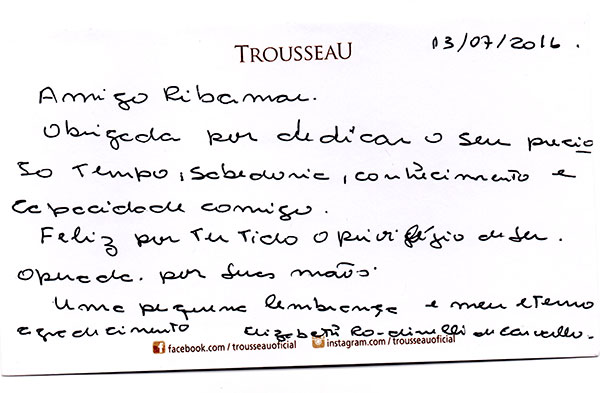 TROUSSEAU 13/07/2016.
Amigo Ribamar.
Obrigada por dedicar o seu precio
so tempo, sabedoria, conhecimento e
capacidade comigo.
Feliz por ter tido o privilégio de ser.
operada. por suas mãos.
Uma pequena lembrança e meu eterno
agradecimento Elizabeth de Carvalho.
facebook.com/trousseauoficial instagram.com/trousseauoficial